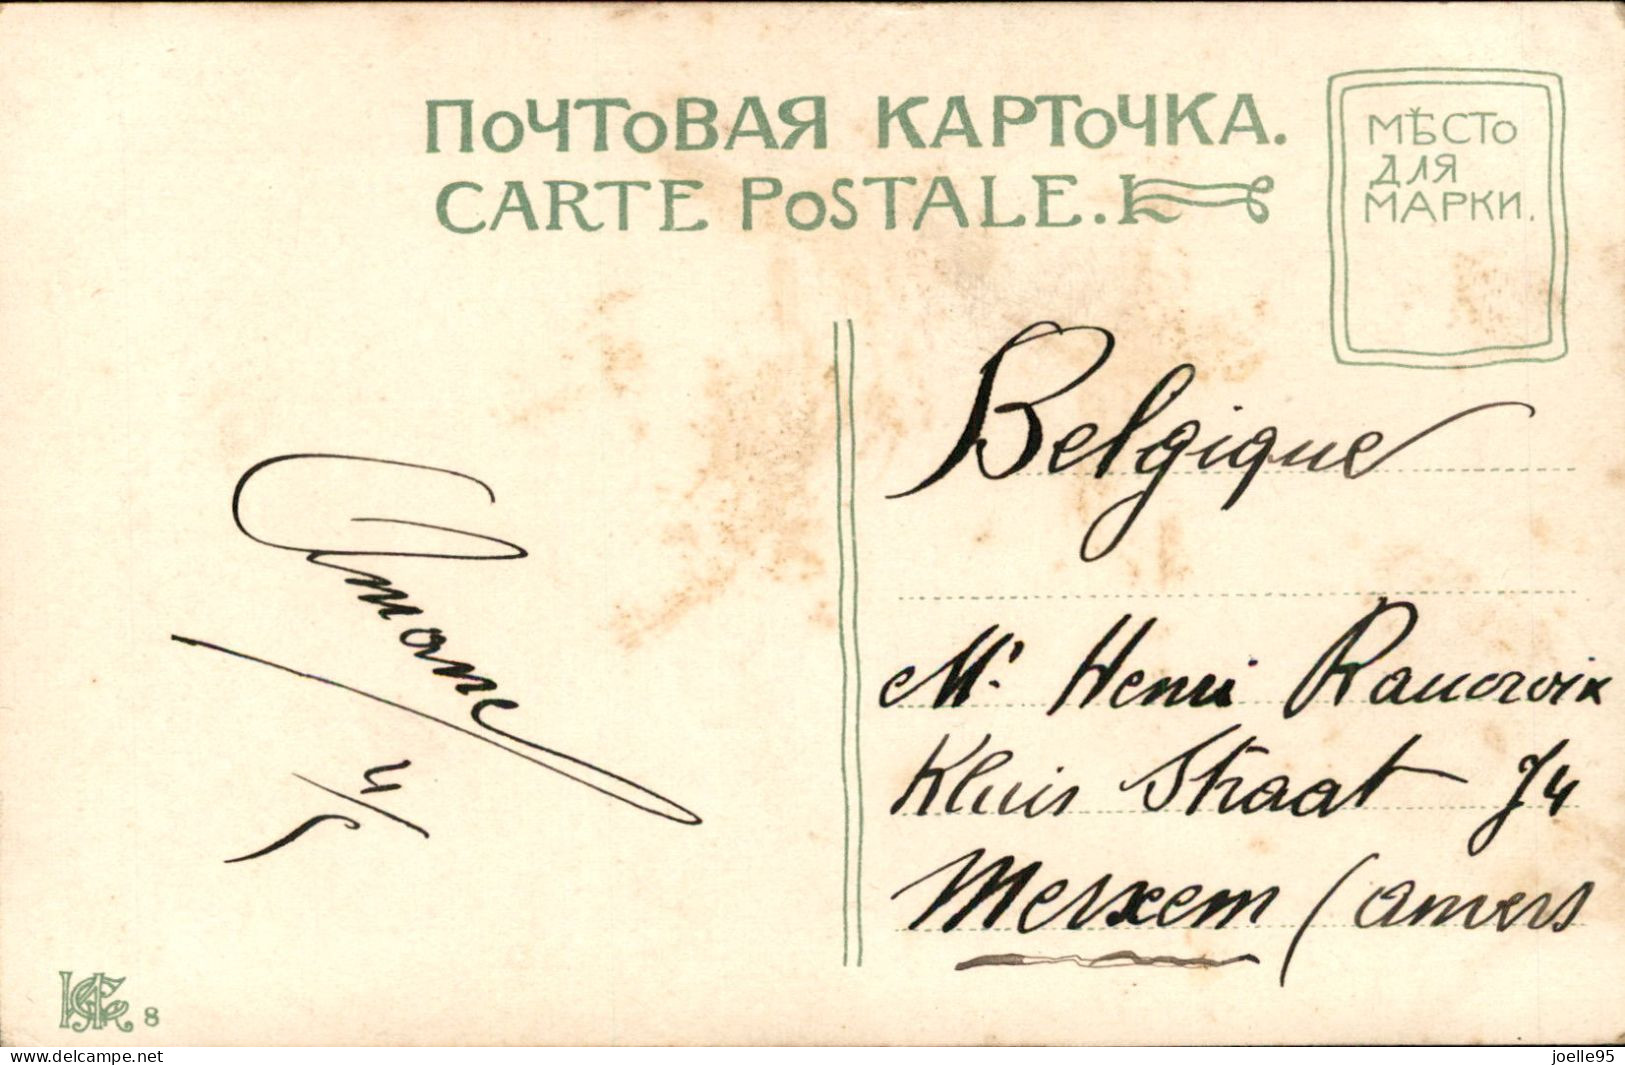 ПОЧТОВАЯ КАРТОЧКА.
CARTE POSTALE.
МѢСТО
ДЛЯ
МАРКИ.
Belgique
Mr. Henri
Kluis Straat 74
Merxem (Anvers
4/5
8
www.delcampe.net
joelle95